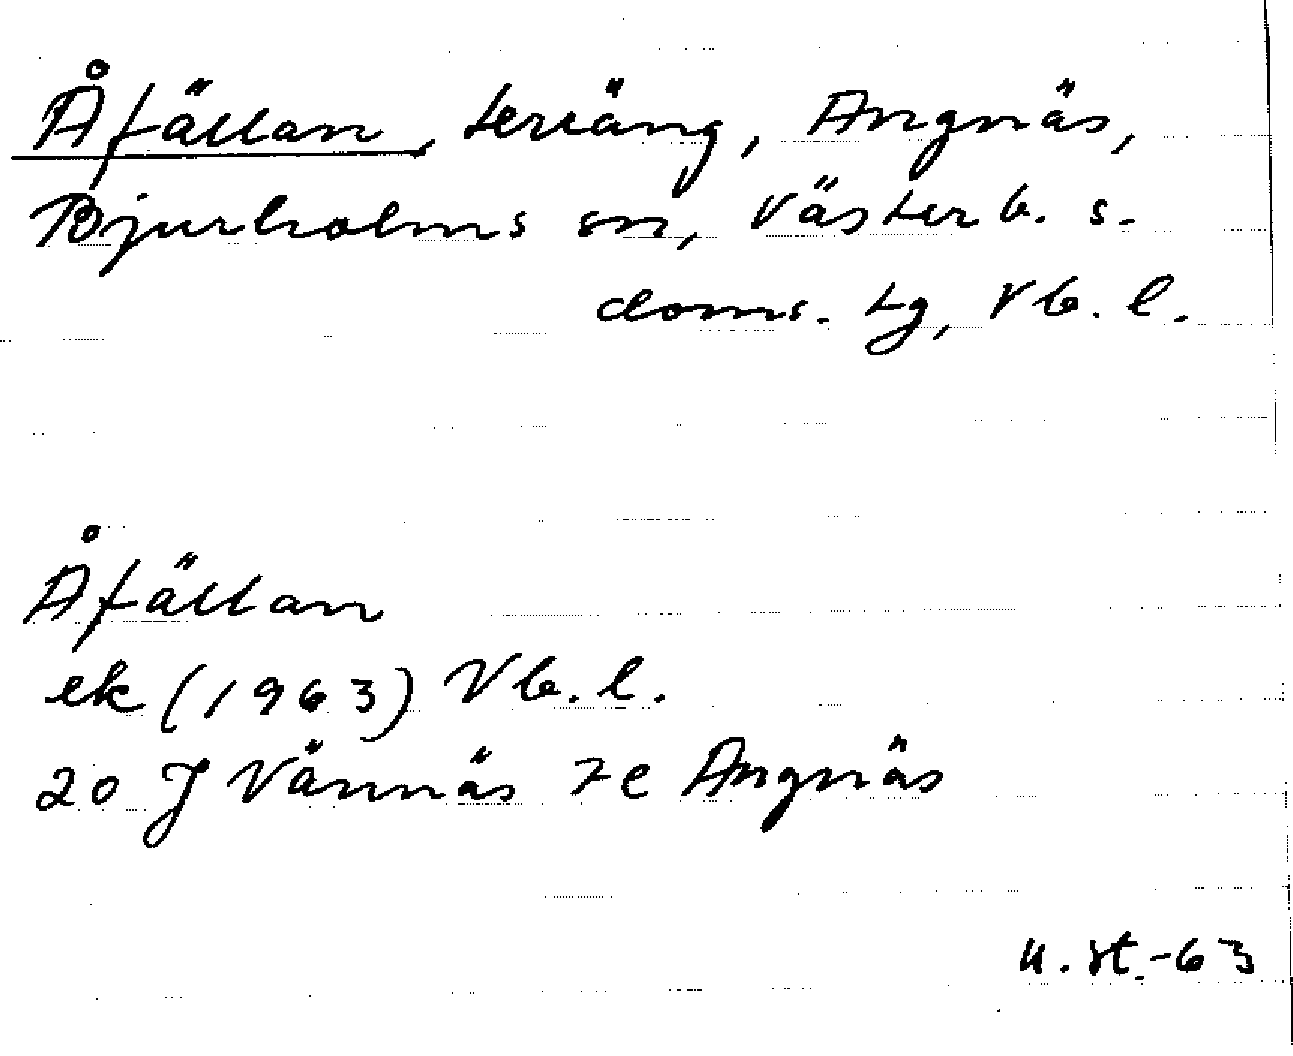 Åfällan, terräng, Angnäs,
Bjurholms sn, Västerb. s.
doms. tg, Vb. l.
Åfällan
ek (1963) Vb. l.
20 J Vännäs 7e Angnäs
u. st.-63